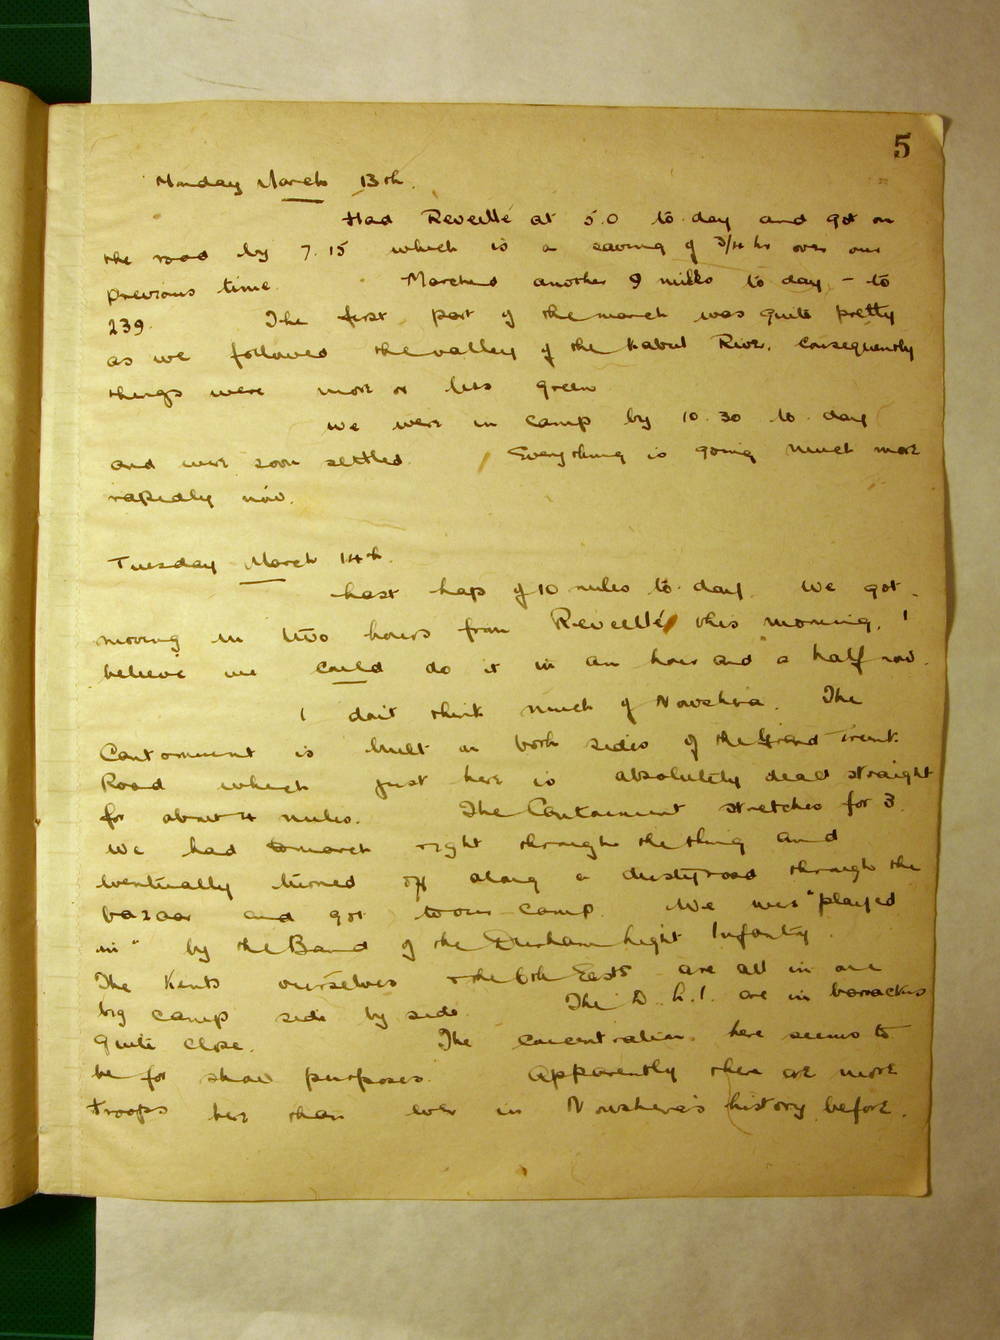 5
Monday March 13th.
Had Reveillé at 5.0 to-day and got on
the road by 7.15 which is a saving of 3/4 hr over our
previous time. Marched another 9 miles to day - to
239. The first part of the march was quite pretty
as we followed the valley of the Kabul River, consequently
things were more or less green
We were in camp by 10.30 to-day
and were soon settled. Everything is going much more
rapidly now.
Tuesday March 14th.
Last lap of 10 miles to-day. We got
moving in two hours from Reveillé this morning, I
believe we could do it in an hour and a half now.
I don't think much of Nowshera. The
Cantonment is built on both sides of the Grand Trunk
Road which just here is absolutely dead straight
for about 4 miles. The Cantonment stretches for 3.
We had to march right through the thing and
eventually turned off along a dusty road through the
bazaar and got to our camp. We were "played
in" by the Band of the Durham Light Infantry.
The Kents ourselves & the 6th East S are all in one
big camp side by side. The D.L.I. are in barracks
quite close. The concentration here seems to
be for show purposes. Apparently there are more
troops here than ever in Nowshera's history before.